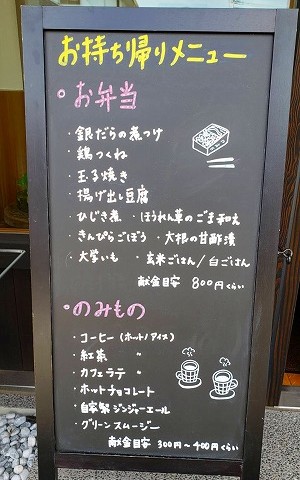 お持ち帰りメニュー
・お弁当
・銀だらの煮つけ
・鶏つくね
・玉子焼き
・揚げ出し豆腐
・ひじき煮 ・ほうれん草のごま和え
・きんぴらごぼう ・大根の甘酢漬
・大学いも ・玄米ごはん/白ごはん
献金目安 800円くらい
・のみもの
・コーヒー (ホット/アイス)
・紅茶 〃
・カフェラテ 〃
・ホットチョコレート
・自家製ジンジャーエール
・グリーンスムージー
献金目安 300円〜400円くらい